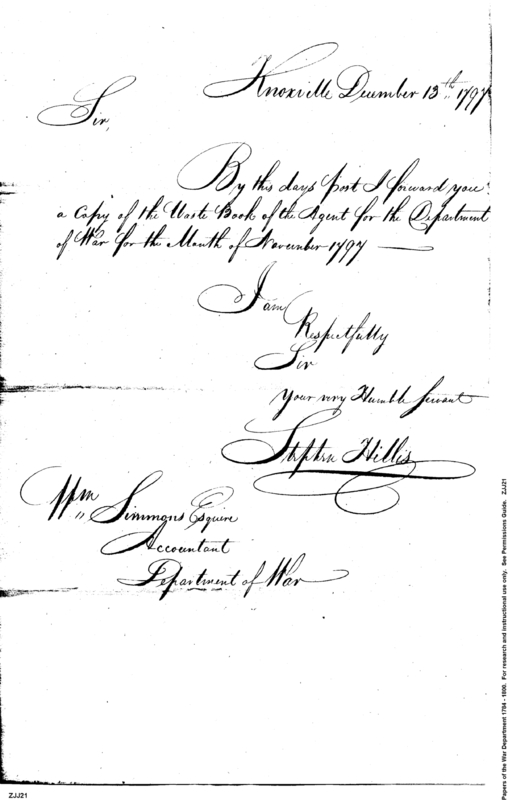 Knoxville December 13th 1797
Sir,
By this days post I forward you
a Copy of the Waste Book of the Agent for the Department
of War for the Month of November 1797 —
I am
Respectfully
Sir
your very Humble Servant
Stephen Hillis
Wm Simmons Esquire
Accountant
Department of War
Papers of the War Department 1784 - 1800. For research and instructional use only. See Permissions Guide. ZJJ21
ZJJ21